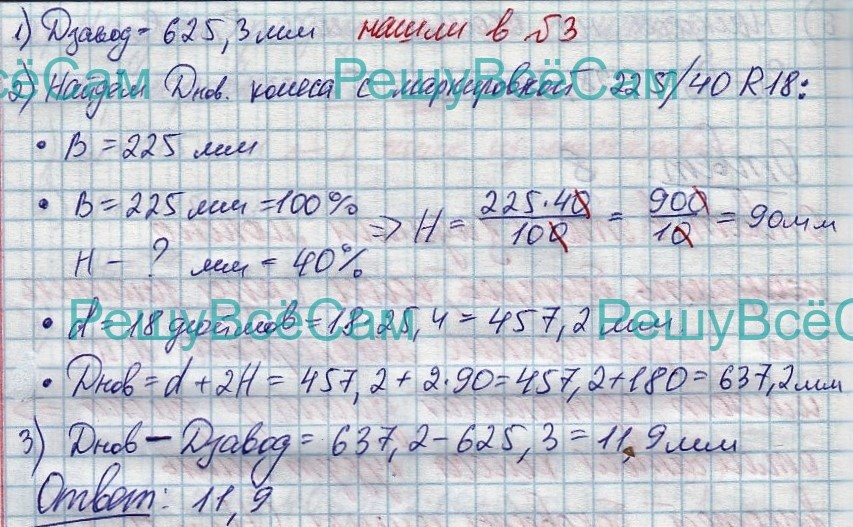 1) Dзавод = 625,3 мм нашли в Б3
РешуВсёСам
2) Найдём Dнов. колеса с маркировкой 225/40 R18:
• B = 225 мм
• B = 225 мм = 100%
H - ? мм = 40%
=> H = 225·40/100 = 900/10 = 90 мм
РешуВсёСам РешуВсёС
• d = 18 дюймов = 18·25,4 = 457,2 мм.
• Dнов = d + 2H = 457,2 + 2·90 = 457,2 + 180 = 637,2 мм
3) Dнов - Dзавод = 637,2 - 625,3 = 11,9 мм
Ответ: 11,9